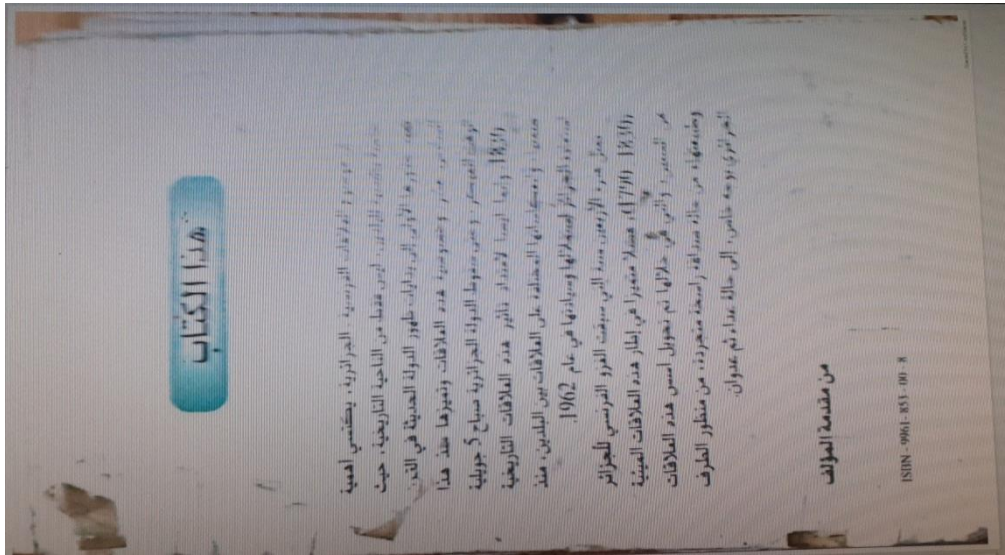 هذا الكتاب
موضوع العلاقات الفرنسية الجزائرية، يكتسي أهمية
للبلدين، ليس فقط من الناحية التاريخية، حيث
جذورها الأولى إلى بدايات ظهور الدولة الحديثة في القرن
السادس عشر وخصوصية هذه العلاقات وتميزها منذ هذا
وحتى سقوط الدولة الجزائرية صباح 5 جويلية
1830 وإنما أيضا لامتداد تأثير هذه العلاقات التاريخية
وانعكاساتها المختلفة على العلاقات بين البلدين، منذ
الجزائر استقلالها وسيادتها في عام 1962.
تمثل فترة الأربعين سنة التي سبقت الغزو الفرنسي للجزائر
(1790-1830)، فصلا متميزا في إطار هذه العلاقات المبنية
والتي في خلالها تم تحويل أسس هذه العلاقات
وطبيعتها، من حالة صداقة راسخة متجردة، من منظور الطرف
الجزائري بوجه خاص، إلى حالة عداء ثم عدوان.
من مقدمة المؤلف
ISBN - 9961 - 853 - 00 - 8